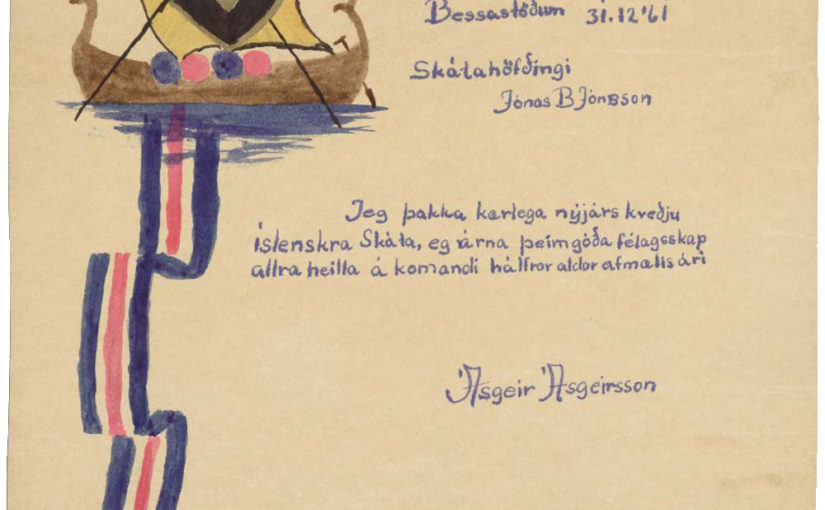 Bessastöðum 31.12'61
Skátahöfðingi
Jónas B Jónsson
Jeg þakka kærlega nýjárs kveðju
íslenskra Skáta, eg árna þeim góða félagsskap
allra heilla á komandi hálfrar aldar afmælis ári
Ásgeir Ásgeirsson